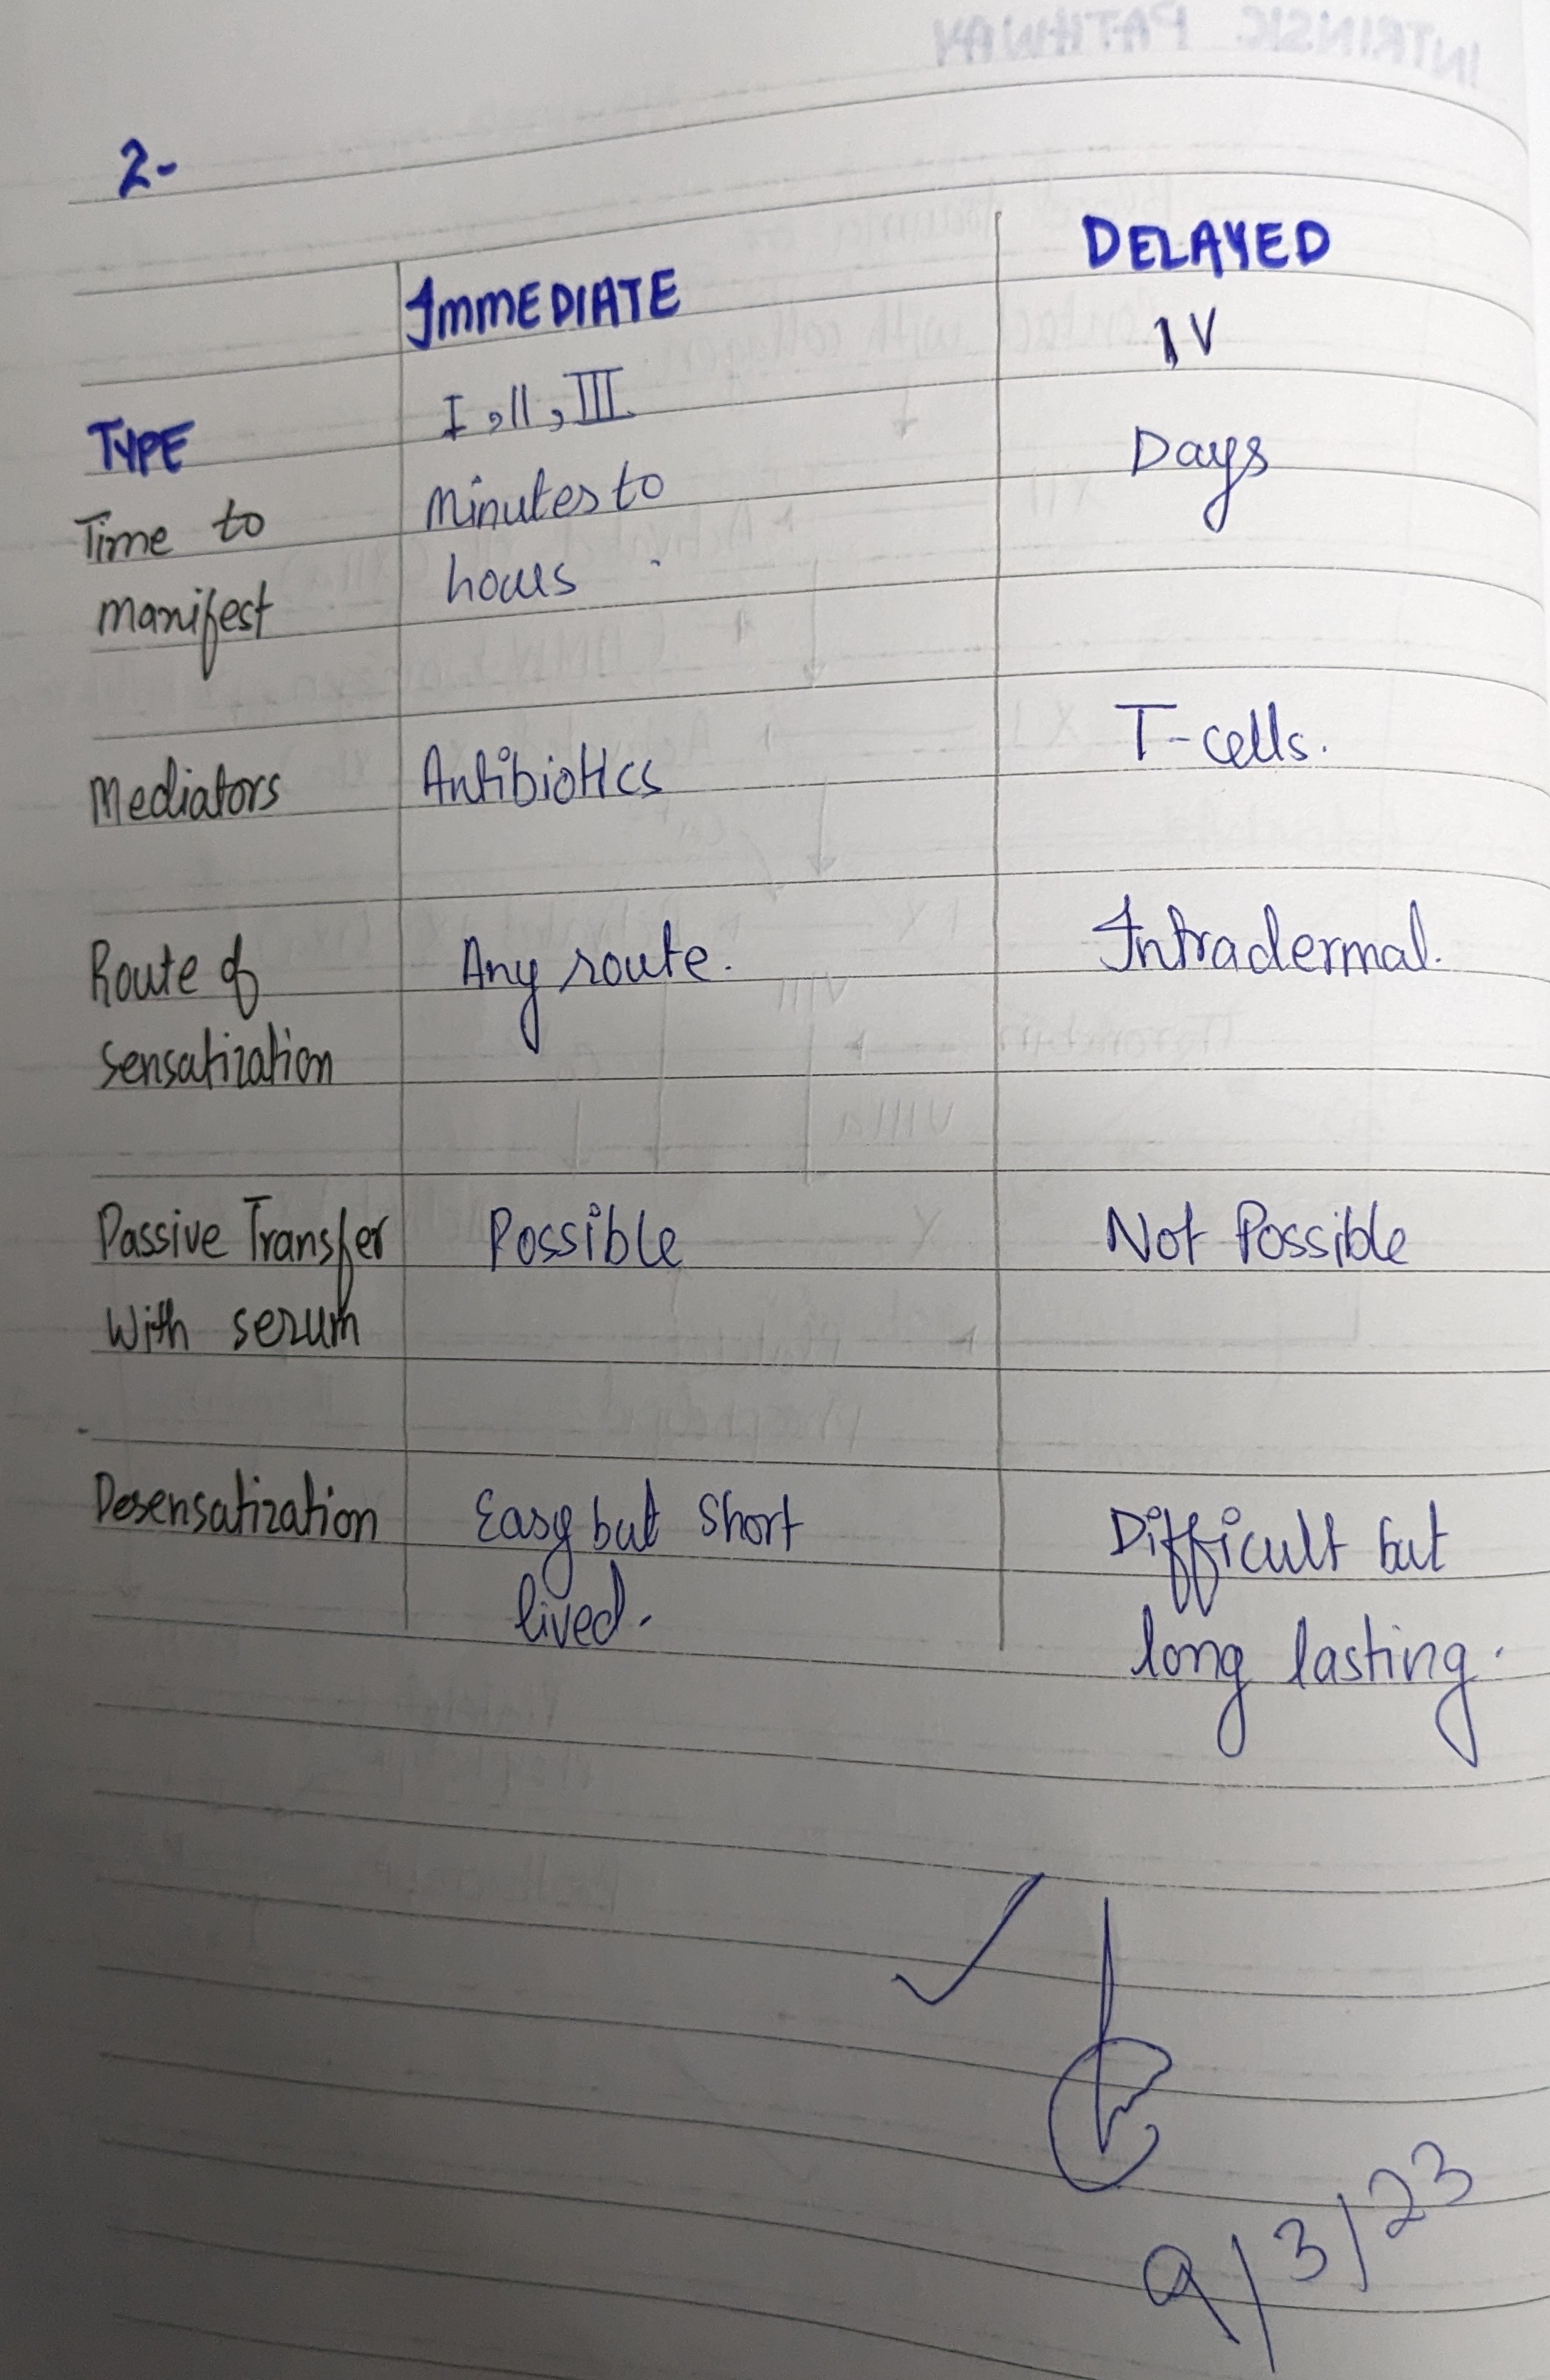 INTRINSIC PATHWAY
2-
IMMEDIATE DELAYED
TYPE I, II, III IV
Time to manifest Minutes to hours Days
Mediators Antibiotics T-cells.
Route of sensatization Any route. Intradermal.
Passive Transfer With serum Possible Not Possible
Desensatization Easy but Short lived. Difficult but long lasting.
9/3/23